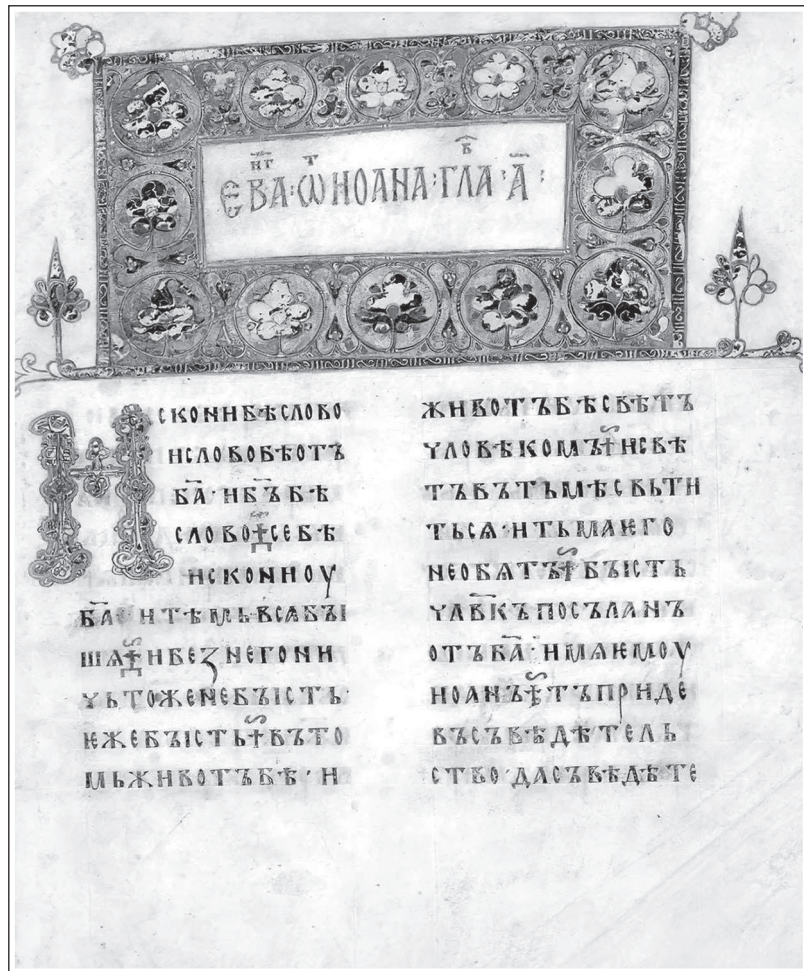 ЄВАⷩ҇ⷢ҇·Ѿ ИОАНА·ГЛАⷡ҇·А҃·
ИСКОНИБѢСЛОВО
ИСЛОВОБѢОТЪ
БА҃·ИБЪ҃БѢ
СЛОВО ⁜ СЕБѢ
ИСКОНИОУ
БА҃·ИТѢМЬВСѦБЪІ
ШѦ ⁜ ИБЕЗНЕГОНИ
ЧЬТОЖЕНЕБЪІСТЬ·
ѤЖЕБЪІСТЬ ⁜ ВЪТО
МЬЖИВОТЪБѢ·И
ЖИВОТЪБѢСВѢТЪ
ЧЛОВѢКОМЪ ⁜ ИСВѢ
ТЪВЪТЬМѢСВЬТИ
ТЬСѦ·ИТЬМАѤГО
НЕОБѦТЪ ⁜ БЪІСТЬ
ЧЛВ҃КЪПОСЪЛАНЪ
ОТЪБА҃·ИМѦѤМОУ
ИОАНЪ ⁜ ТЪПРИДЕ
ВЪСЪВѢДѢТЕЛЬ
СТВО·ДАСЪВѢДѢТЕ